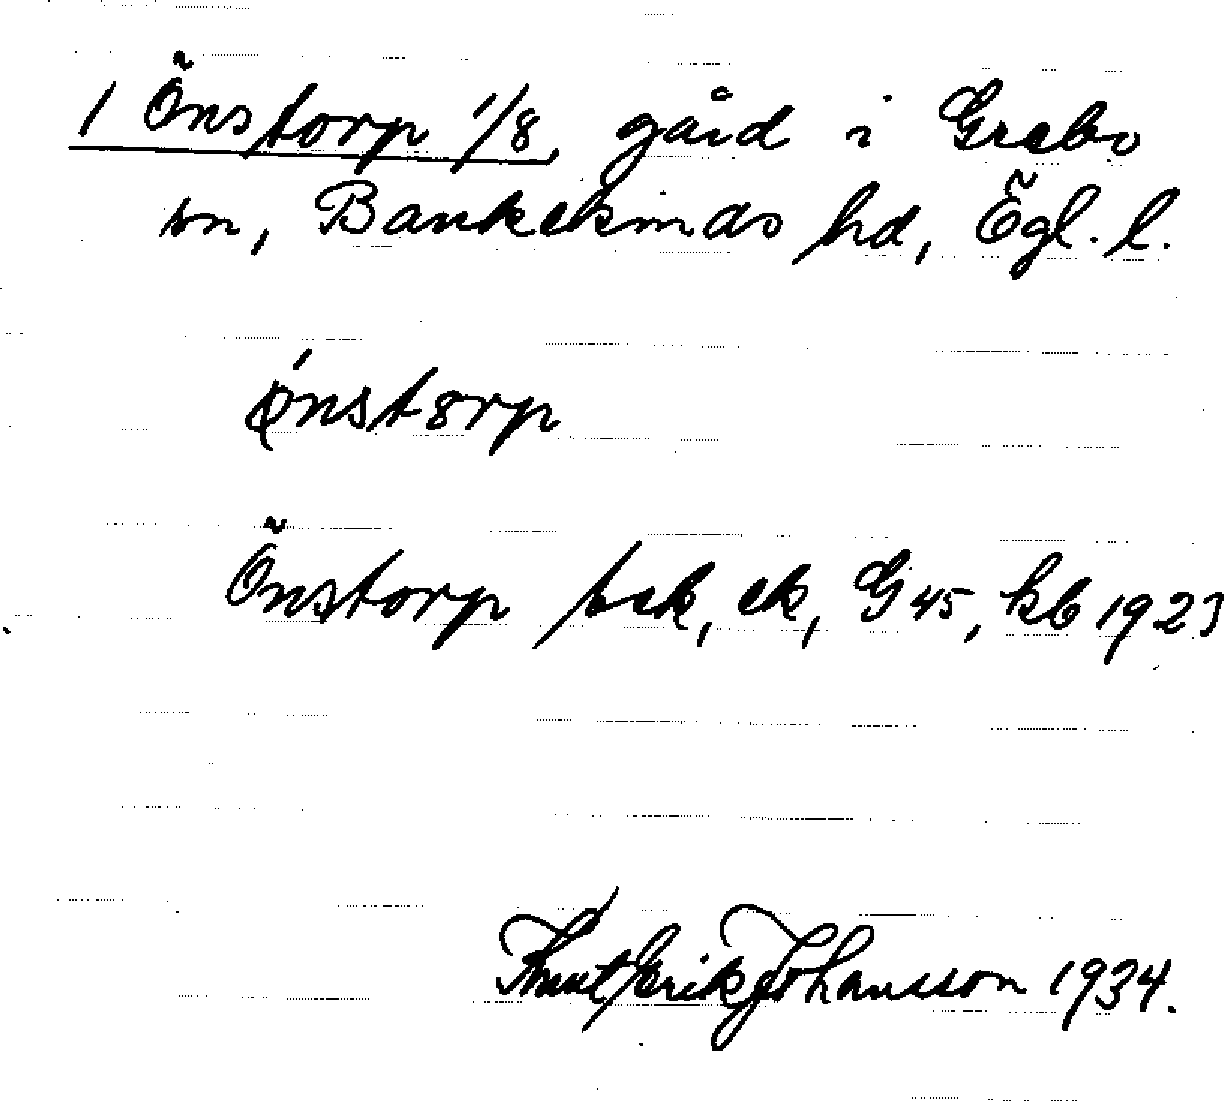 1 Önstorp 1/8, gård i Grebo
sn, Bankekinds hd, Ögl. l.
ǿnstorp
Önstorp bek, ek, G 45, kb 1923
Knut Erik Johansson 1934.